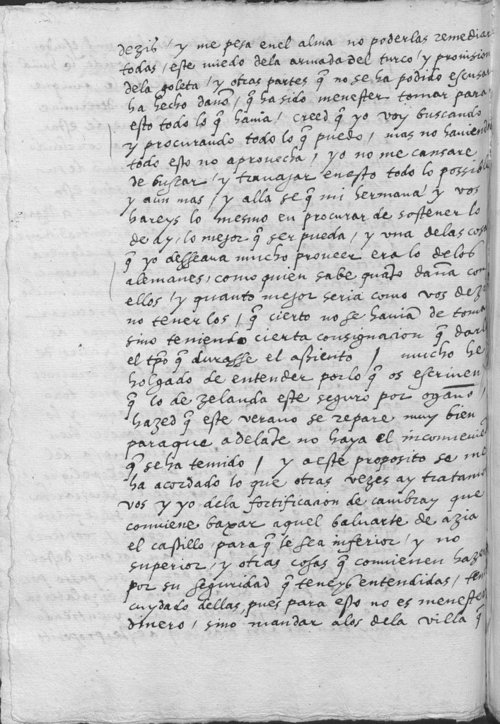 dezis / y me pesa enel alma no poderlas remediar
todas / este miedo dela armada del turco / y prouision
dela goleta / y otras partes q̃ no se ha podido escusar
ha hecho daño / q̃ ha sido menester tomar para
esto todo lo q̃ hauia / creed q̃ yo voy buscando
y procurando todo lo q̃ puedo / mas no hauiendo
todo esto no aprouecha / yo no me cansare
de buscar / y trauajar en esto todo lo possible
y aun mas / y alla se q̃ mi hermana y vos
hareys lo mesmo en procurar de sostener lo
de ay / lo mejor q̃ ser pueda / y vna delas cosas
q̃ yo desseara mucho proueer era lo delos
alemanes / como quien sabe quãto daña con
ellos / y quanto mejor seria como vos dezis
no tenerlos / q̃ cierto no se hauia de tomar
sino teniendo cierta consignacion q̃
el tp̃o q̃ durasse el assiento / mucho he
holgado de entender por lo q̃ os escriuen
q̃ lo de zelanda este seguro por ogaño /
hazed q̃ este verano se repare muy bien
paraque adelãte no haya el inconueniente
q̃ se ha temido / y a este proposito se me
ha acordado lo que otras vezes ay tratamos
vos y yo dela fortificacion de cambray que
conuiene baxar aquel baluarte de azia
el castillo / para q̃ le sea inferior / y no
superior / y otras cosas q̃ conuienen hazer
por su seguridad q̃ teneys entendidas /
cuydado dellas, pues para esto no es menester
dinero / sino mandar alos dela villa q̃